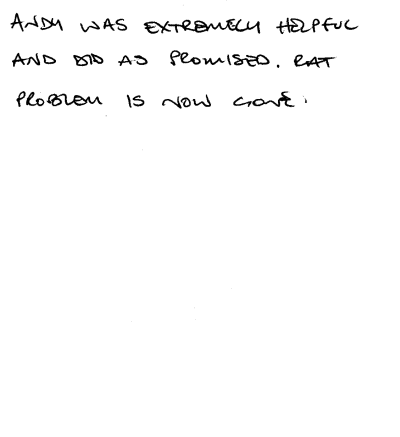 ANDY WAS EXTREMELY HELPFUL
AND DID AS PROMISED. RAT
PROBLEM IS NOW GONE.